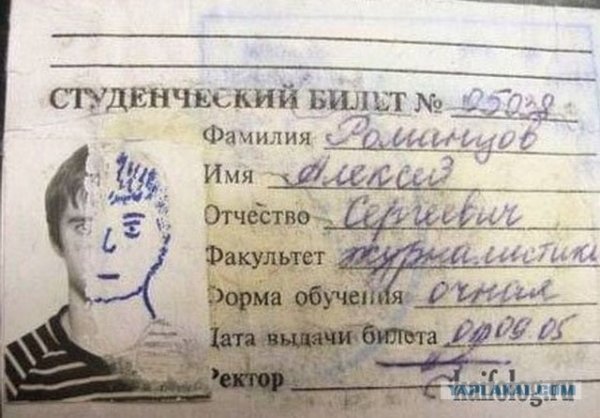 СТУДЕНЧЕСКИЙ БИЛЕТ № 05038
Фамилия Романцов
Имя Алексей
Отчество Сергеевич
Факультет журналистики
Форма обучения очная
Дата выдачи билета 09.05
Ректор
haifolog.ru
YAPLAKAL.COM